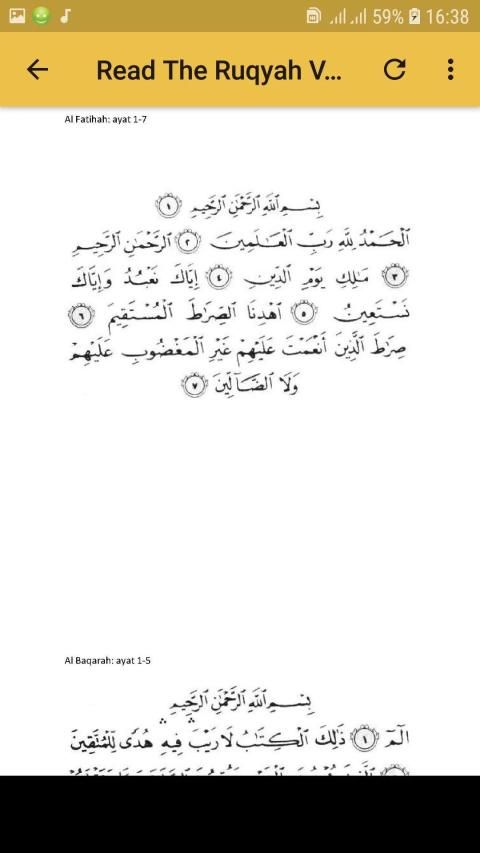 59% 16:38
Read The Ruqyah V...
Al Fatihah: ayat 1-7
بِسْمِ ٱللَّهِ ٱلرَّحْمَٰنِ ٱلرَّحِيمِ ١
ٱلْحَمْدُ لِلَّهِ رَبِّ ٱلْعَٰلَمِينَ ٢ ٱلرَّحْمَٰنِ ٱلرَّحِيمِ
٣ مَٰلِكِ يَوْمِ ٱلدِّينِ ٤ إِيَّاكَ نَعْبُدُ وَإِيَّاكَ
نَسْتَعِينُ ٥ ٱهْدِنَا ٱلصِّرَٰطَ ٱلْمُسْتَقِيمَ ٦
صِرَٰطَ ٱلَّذِينَ أَنْعَمْتَ عَلَيْهِمْ غَيْرِ ٱلْمَغْضُوبِ عَلَيْهِمْ
وَلَا ٱلضَّآلِّينَ ٧
Al Baqarah: ayat 1-5
بِسْمِ ٱللَّهِ ٱلرَّحْمَٰنِ ٱلرَّحِيمِ
الٓمٓ ١ ذَٰلِكَ ٱلْكِتَٰبُ لَا رَيْبَ ۛ فِيهِ ۛ هُدًى لِّلْمُتَّقِينَ